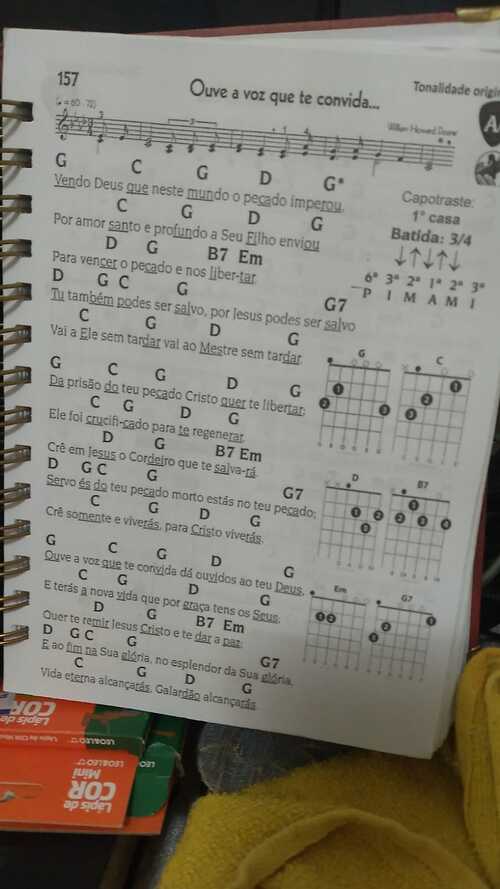 157
Ouve a voz que te convida...
Tonalidade origin
William Howard Doane
G C G D G*
Vendo Deus que neste mundo o pecado imperou,
C G D G
Por amor santo e profundo a Seu Filho enviou
D G B7 Em
Para vencer o pecado e nos liber-tar.
D G C G G7
Tu também podes ser salvo, por Jesus podes ser salvo
C G D G
Vai a Ele sem tardar vai ao Mestre sem tardar.
Capotraste:
1ª casa
Batida: 3/4
↓↑↓↑↓
6ª 3ª 2ª 1ª 2ª 3ª
P I M A M I
G C G D G
Da prisão do teu pecado Cristo quer te libertar;
C G D G
Ele foi crucifi-cado para te regenerar.
D G B7 Em
Crê em Jesus o Cordeiro que te salva-rá.
D G C G G7
Servo és do teu pecado morto estás no teu pecado;
C G D G
Crê somente e viverás, para Cristo viverás.
G C G D G
Ouve a voz que te convida dá ouvidos ao teu Deus,
C G D G
E terás a nova vida que por graça tens os Seus.
D G B7 Em
Quer te remir Jesus Cristo e te dar a paz.
D G C G G7
E ao fim na Sua glória, no esplendor da Sua glória,
C G D G
Vida eterna alcançarás. Galardão alcançarás.
G C
D B7
Em G7
Lápis de
COR
Mini
LEO&LEO
LEO&LEO
Lápis de
COR